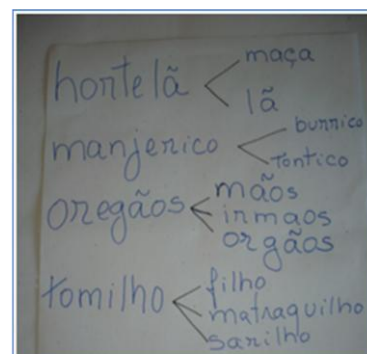 hortelã
maça
lã
manjerico
burrico
tontico
oregãos
mãos
irmaos
orgãos
tomilho
filho
matraquilho
sarilho